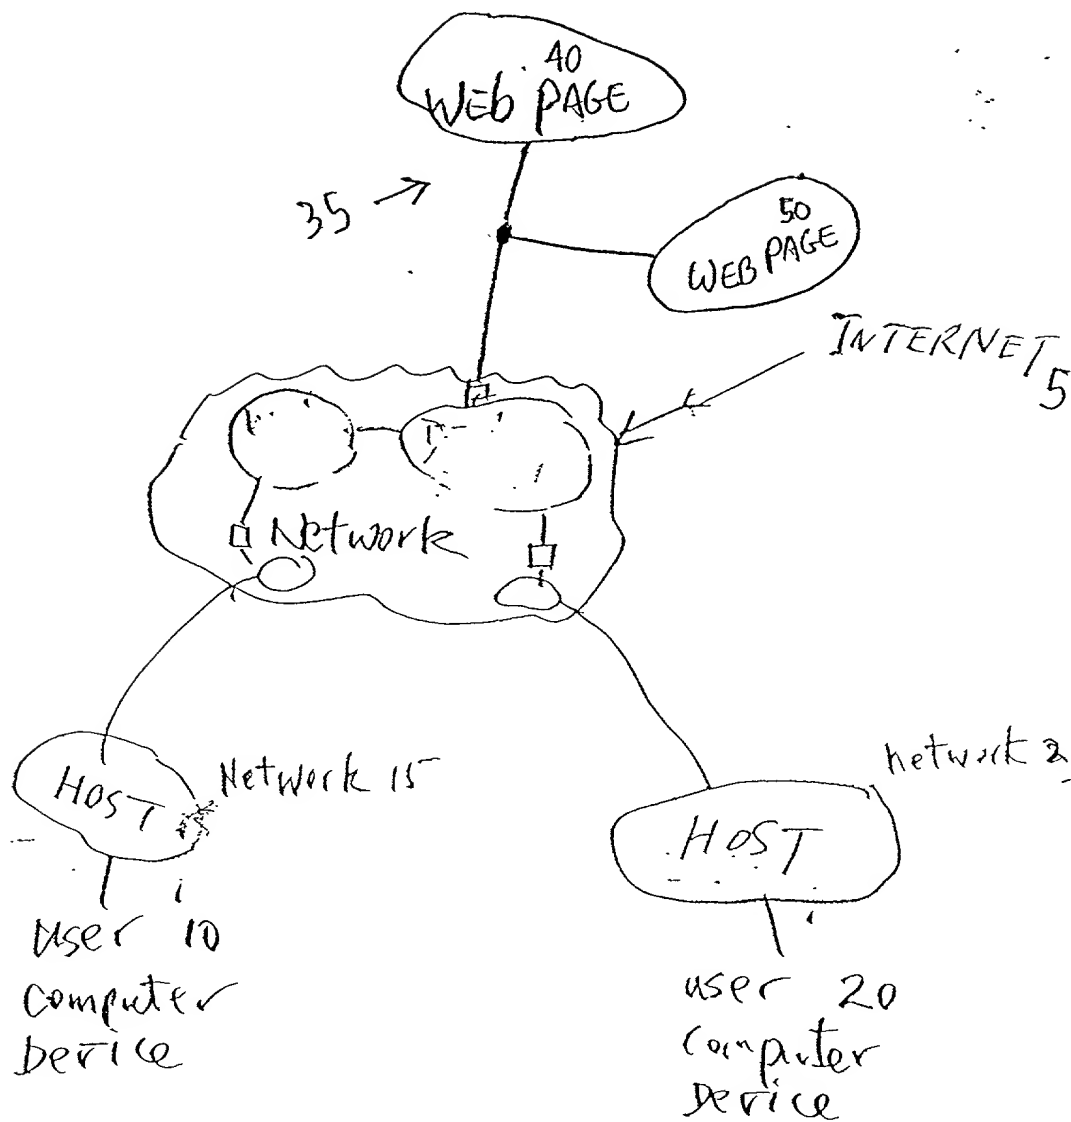 40
Web PAGE
35
50
WEB PAGE
INTERNET
5
Network
HOST
Network 15
network 2
HOST
user 10
computer
Device
user 20
computer
Device